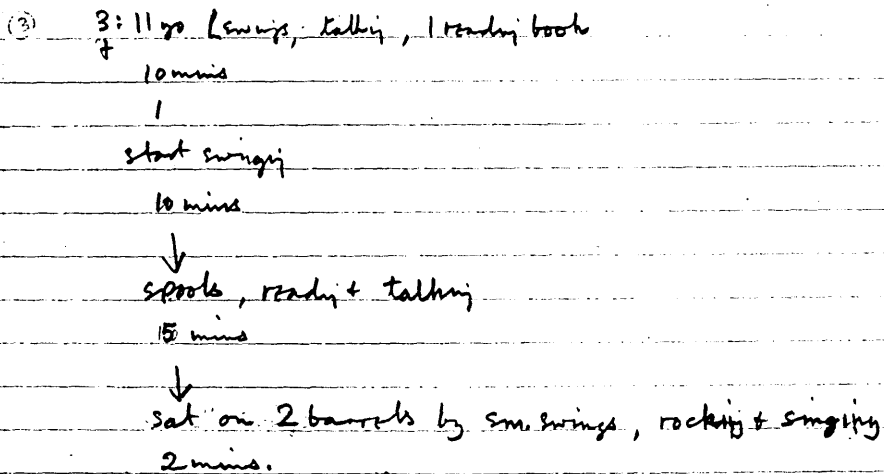 (3) 3: 11 yo L swings, talking, 1 reading book
f
10 mins
1
start swinging
10 mins
↓
spools, reading & talking
15 mins
↓
sat on 2 barrels by sm. swings, rocking & singing
2 mins.